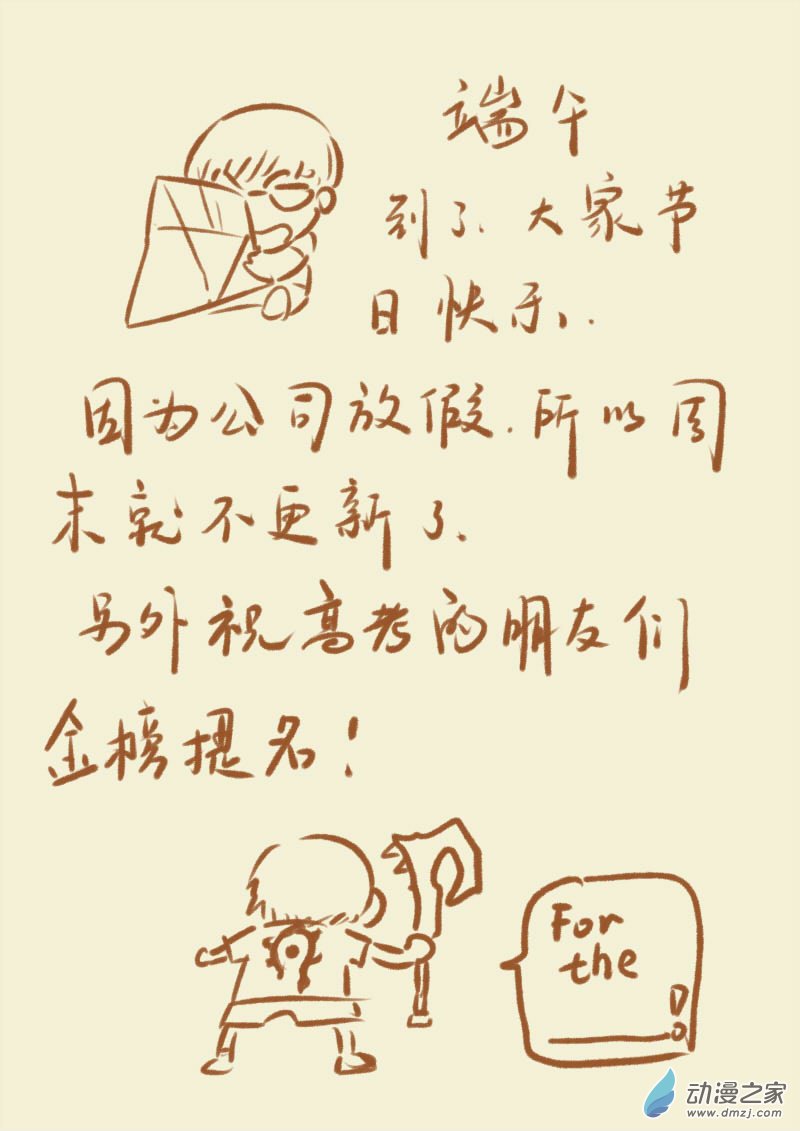 端午
到了、大家节
日快乐、
因为公司放假、所以周
末就不更新了、
另外祝高考的朋友们
金榜提名！
For
the
动漫之家
www.dmzj.com